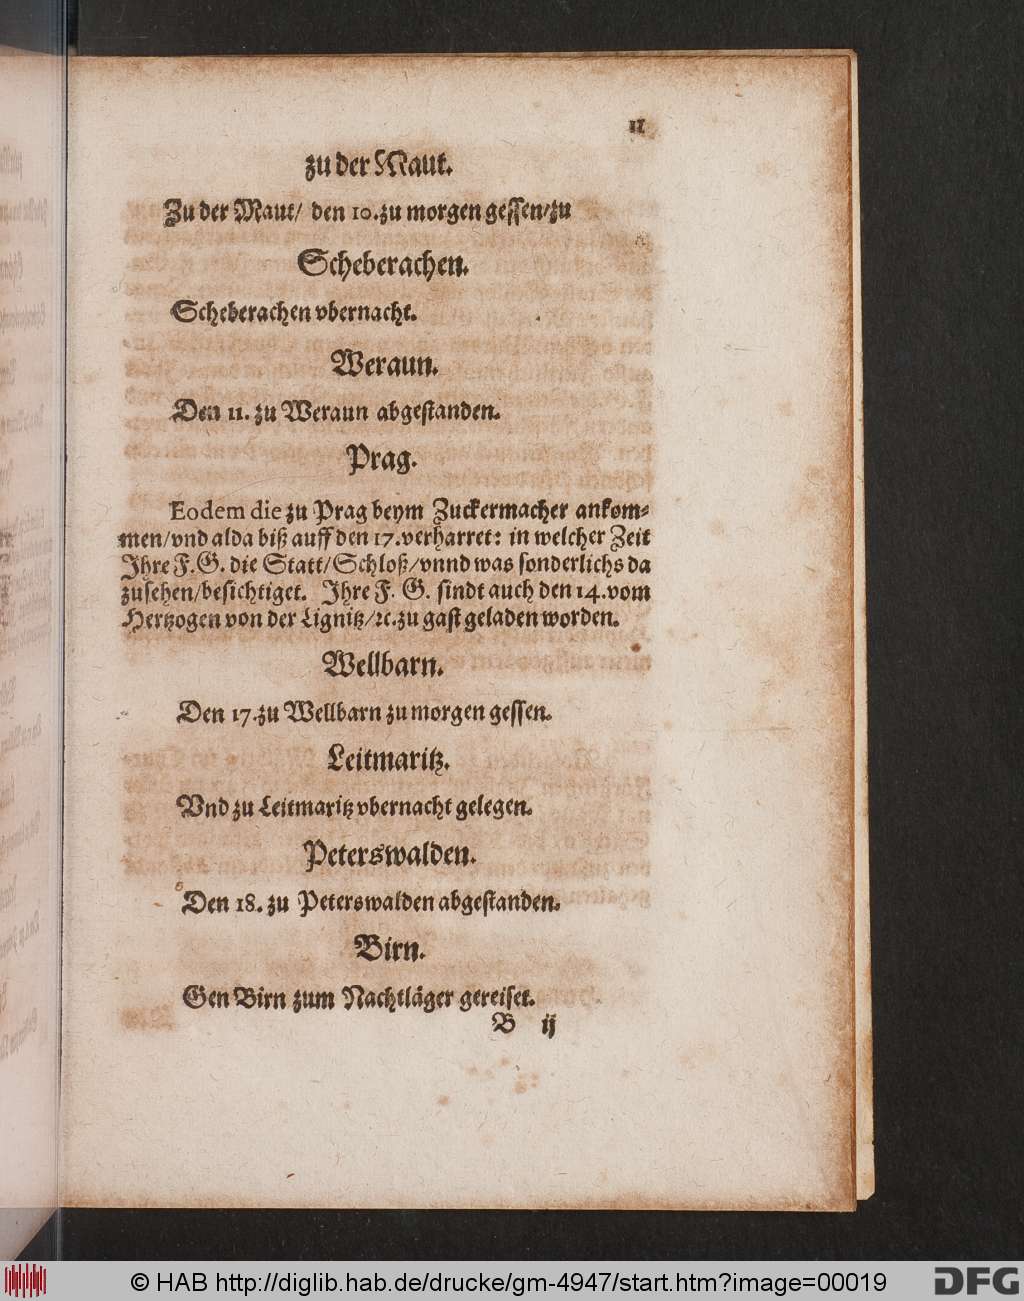 11
zu der Maut.
Zu der Maut/ den 10. zu morgen gessen/zu
Scheberachen.
Scheberachen vbernacht.
Weraun.
Den 11. zu Weraun abgestanden.
Prag.
Eodem die zu Prag beym Zuckermacher ankom-
men/vnd alda biß auff den 17. verharret: in welcher Zeit
Ihre F. G. die Statt/Schloß/vnnd was sonderlichs da
zusehen/besichtiget. Ihre F. G. sindt auch den 14. vom
Hertzogen von der Lignitz/ꝛc. zu gast geladen worden.
Wellbarn.
Den 17. zu Wellbarn zu morgen gessen.
Leitmaritz.
Vnd zu Leitmaritz vbernacht gelegen.
Peterswalden.
Den 18. zu Peterswalden abgestanden.
Birn.
Gen Birn zum Nachtläger gereiset.
B ij
© HAB http://diglib.hab.de/drucke/gm-4947/start.htm?image=00019
DFG